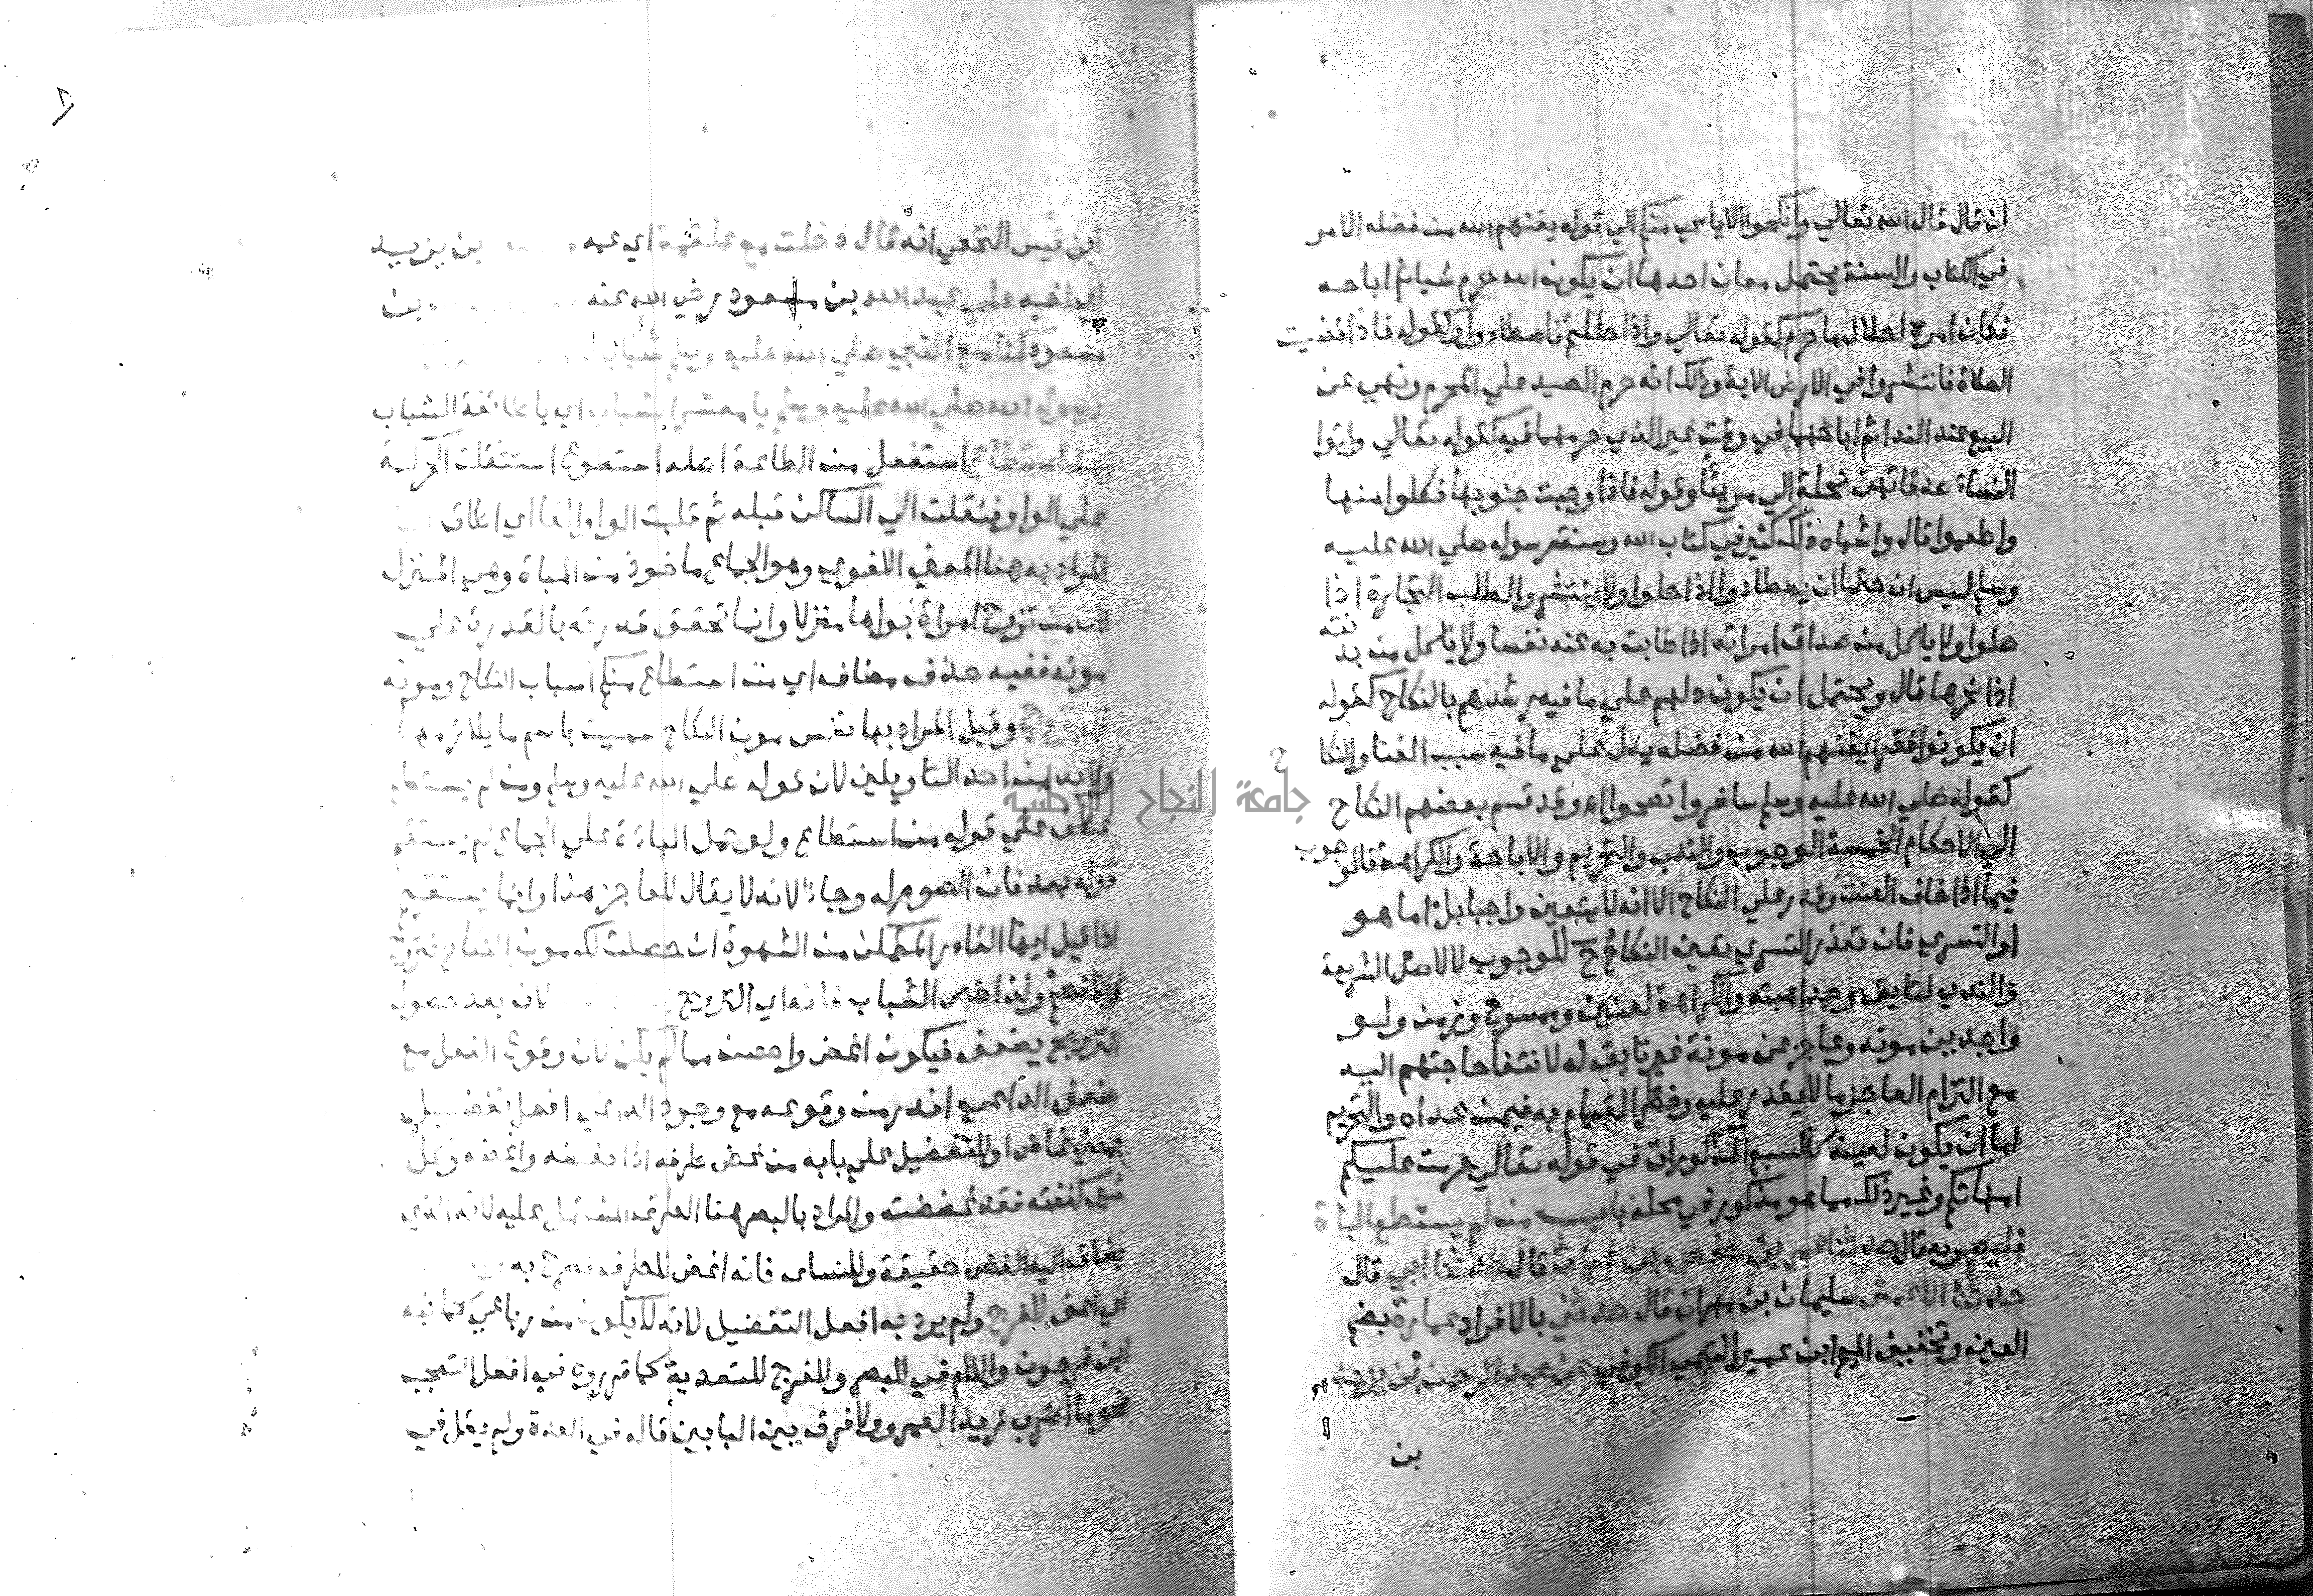 ان قال قال الله تعالي وانكحوا الايامي منكم الي قوله يغنهم الله من فضله الامر
في الكتاب والسنة يحتمل معان احدها ان يكون الله حرم شيا ثم اباحه
فكان امره احلال ما حرم كقوله تعالي واذا حللتم فاصطادوا وكقوله فاذا قضيت
الصلاة فانتشروا في الارض الاية وذلك انه حرم الصيد علي المحرم ونهي عن
البيع عند الندا ثم اباحهما في وقت غير الذي حرمهما فيه كقوله تعالي واتوا
النساء صدقاتهن نحلة الي مريئا وقوله فاذا وجبت جنوبها فكلوا منها
واطعموا قال واشباه ذلك كثير في كتاب الله وسنة رسوله صلي الله عليه
وسلم ليس ان حتما ان يصطادوا اذا حلوا ولا ينتشروا لطلب التجارة اذا
صلوا ولا ياكل من صداق امراته اذا طابت به عنه نفسا ولا ياكل من بدنته
اذا نحرها قال ويحتمل ان يكون دلهم علي ما فيه رشدهم بالنكاح كقوله
ان يكونوا فقرا يغنهم الله من فضله يدل علي ما فيه سبب الغنا والنكاح
كقوله صلي الله عليه وسلم سافروا تصحوا اه وقد قسم بعضهم النكاح
الي الاحكام الخمسة الوجوب والندب والتحريم والاباحة والكراهة فالوجوب
فيما اذا خاف العنت وقدر علي النكاح الا انه لا يتعين واجبا بل اما هو
او التسري فان تعذر التسري تعين النكاح ح للوجوب لا لاصل الشريعة
والندب لتايق وجد اهبته والكراهة لعنين وممسوح وزمن ولو
واجدين مونه وعاجز عن مونة غير تايق له لانتفا حاجتهم اليه
مع التزام العاجز ما لا يقدر عليه وخطر القيام به فيمن عداه والتحريم
اما ان يكون لعينه كالسبع المذكورات في قوله تعالي حرمت عليكم
امهاتكم وغير ذلك مما هو مذكور في محله باب من لم يستطع الباة
فليصم وبه قال حدثنا عمر بن حفص بن غياث قال حدثنا ابي قال
حدثنا الاعمش سليمان بن مهران قال حدثني بالافراد عمارة بضم
العين وتخفيف الميم ابن عمير التيمي الكوفي عن عبد الرحمن بن يزيد
بن
ابن قيس النخعي انه قال دخلت مع علقمة اي عمه بن يزيد
اي اخيه علي عبد الله بن مسعود رضي الله عنه بن
مسعود كنا مع النبي صلي الله عليه وسلم شبابا
رسول الله صلي الله عليه وسلم يا معشر الشباب اي يا طائفة الشباب
من استطاع استفعل من الطاعة اصله استطوع استثقلت الحركة
علي الواو فنقلت الي الساكن قبله ثم قلبت الواو الفا اي اطاق
المراد به هنا المعني اللغوي وهو الجماع ماخوذ من المباة وهي المنزل
لان من تزوج امراة بواها منزلا وانما تحقق قدرته بالقدرة علي
مونه ففيه حذف مضاف اي من استطاع منكم اسباب النكاح ومونه
فليتزوج وقيل المراد بها نفس مون النكاح سميت باسم ما يلازمها
ولا بد من احد التاويلين لان قوله صلي الله عليه وسلم ومن لم يستطع
عطف علي قوله من استطاع ولو حمل الباءة علي الجماع لم يستقم
قوله بعد فان الصوم له وجاء لانه لا يقال للعاجز هذا وانما يستقيم
اذا قيل ايها القادر المتمكن من الشهوة ان حصلت لك مون النكاح فتزوج
والا فصم ولذا خص الشباب فانه اي التزويج لان بعد حصول
التزويج يضعف فيكون اغض واحصن مما لم يكن لان وقوع الفعل مع
ضعف الداعي اندر من وقوعه مع وجود الداعي افعل تفضيل
بمعني غاض او للتفضيل علي بابه من غض طرفه اذا خفضه واغمضه وكل
شي كففته فقد غضضته والمراد بالبصر هنا الطرف المشتمل عليه لانه الذي
يضاف اليه الغض حقيقة وللنساي فانه اغض للطرف
اي اعف للفرج ولم يرد به افعل التفضيل لانه لا يكون من رباعي كما نبه
ابن فرحون واللام في للبصر وللفرج للتعدية كما قرروه في افعل التعجب
نحو ما اضرب زيد العمرو ولا فرق بين البابين قاله في العدة ولم يقل في